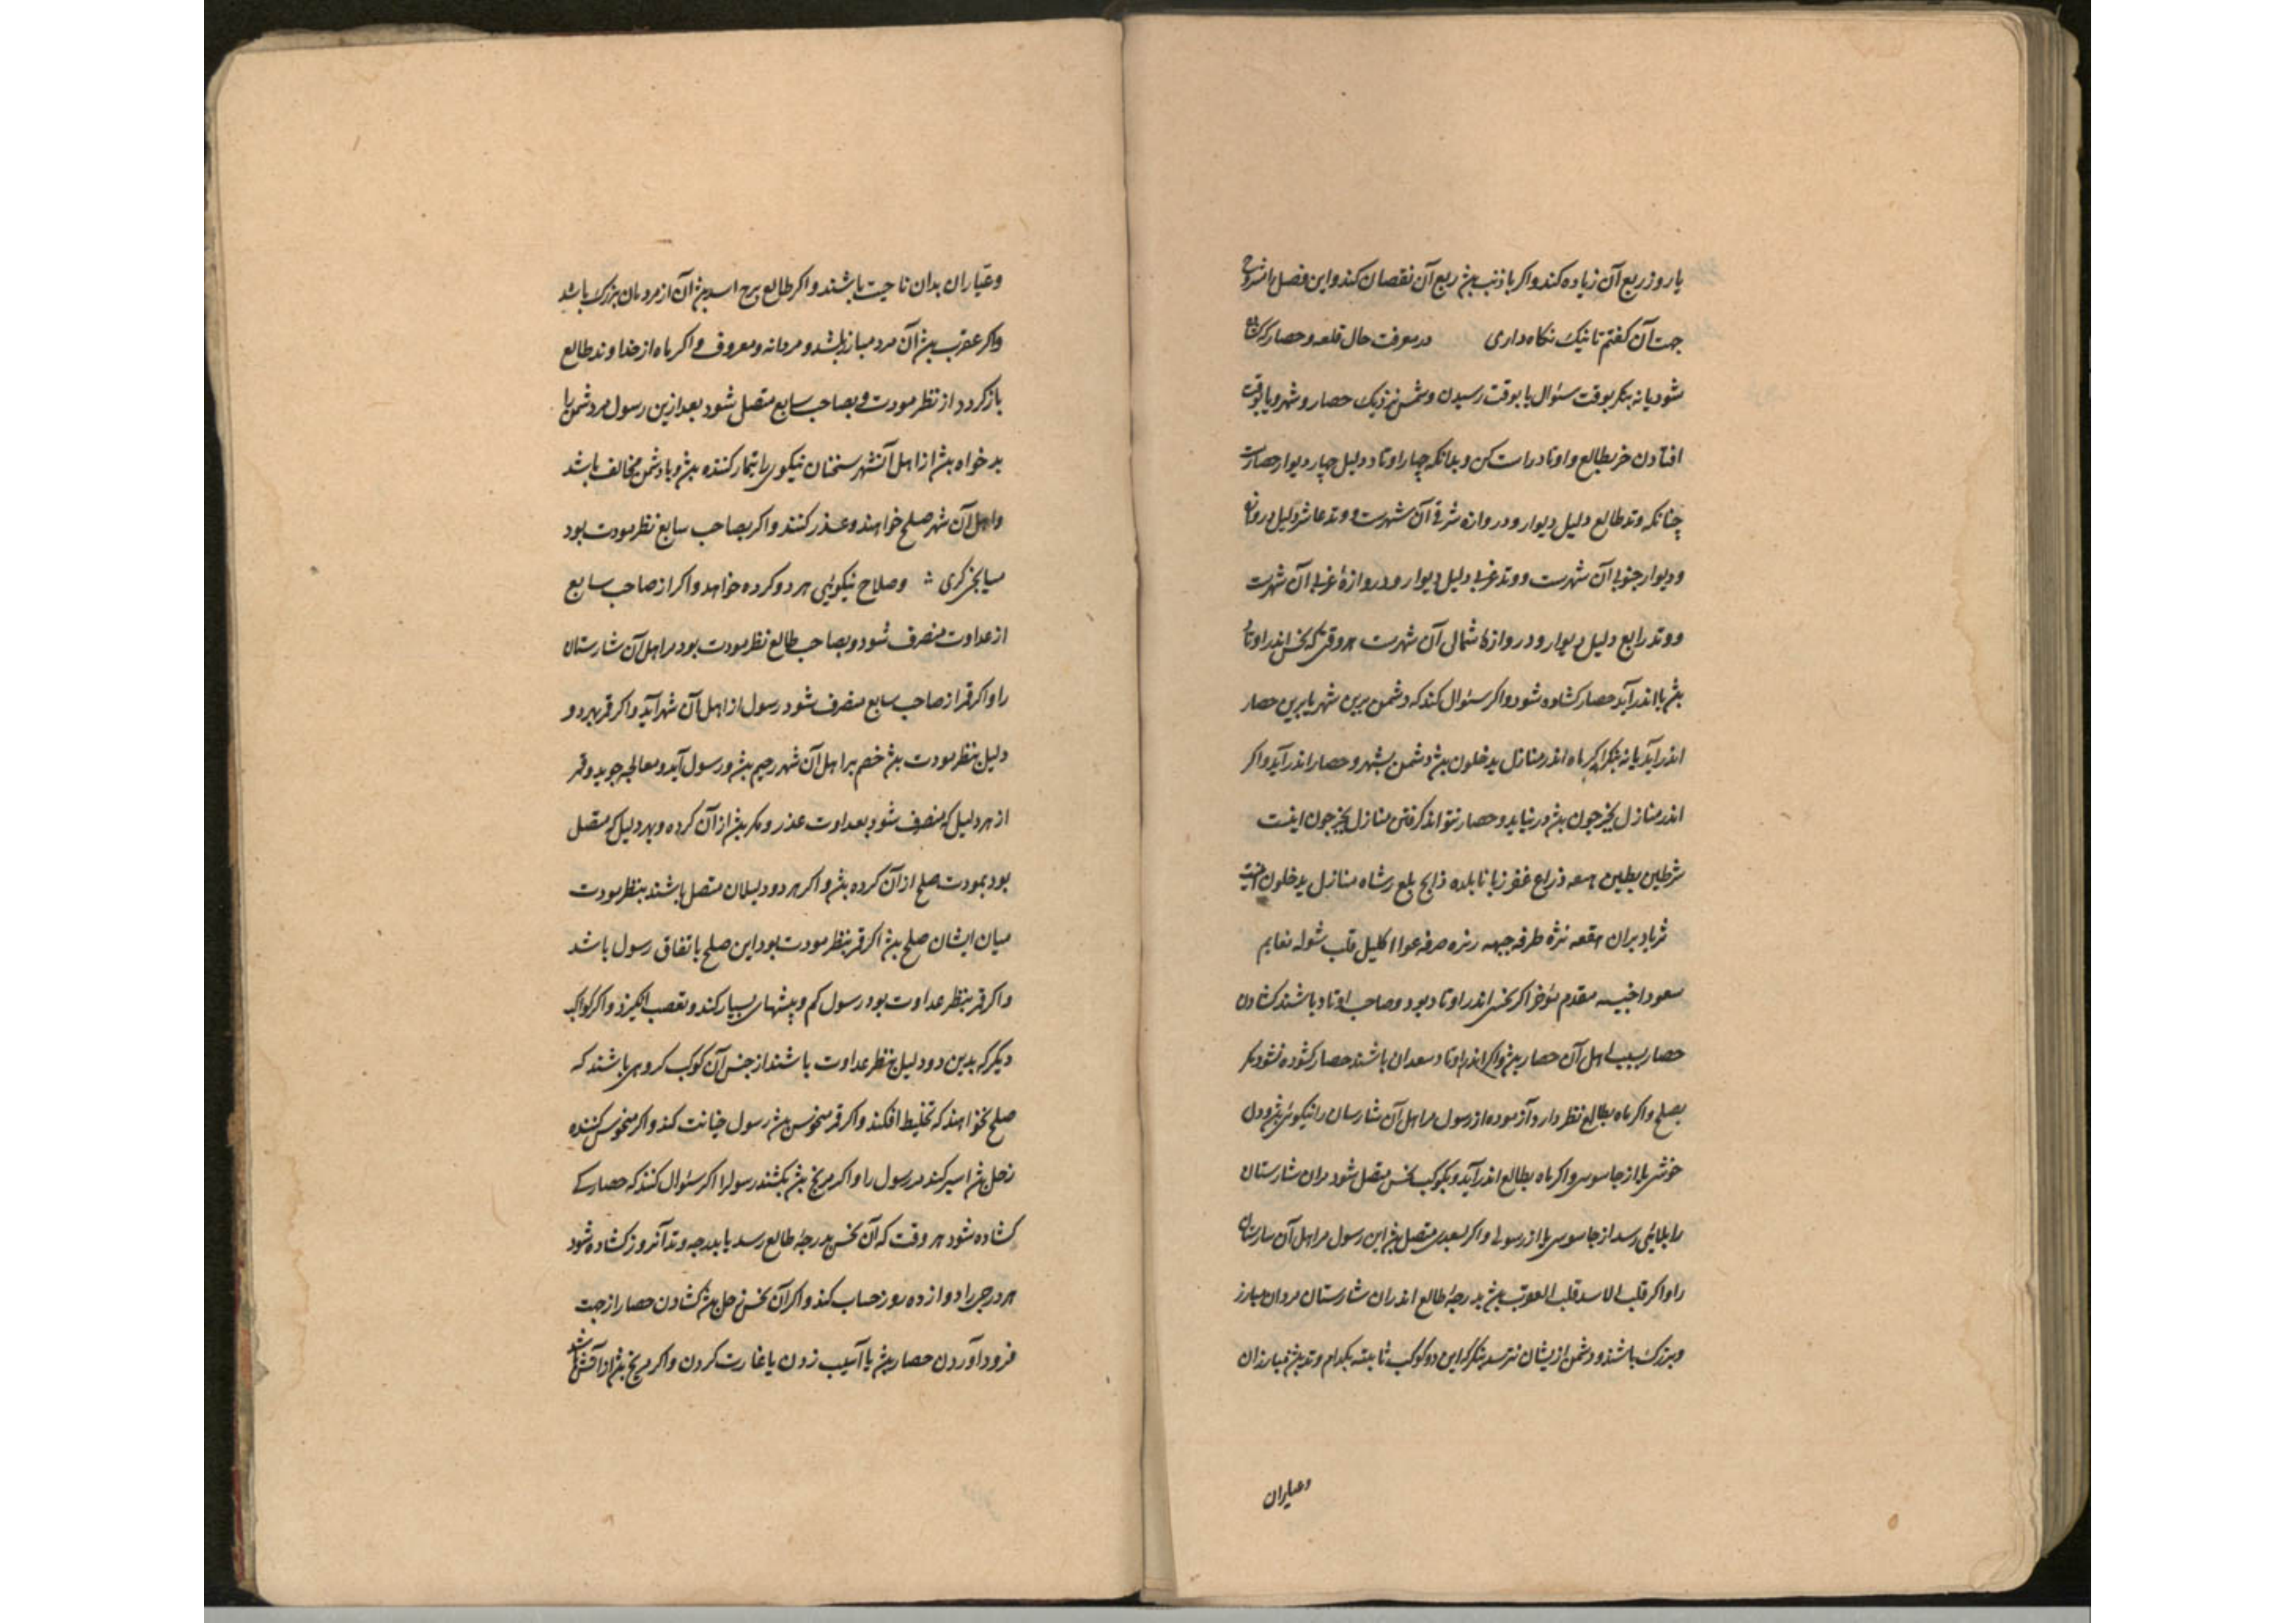 یا روز ربع آن زیاده کند واکر با ذنب بود ربع آن نقصان کند واین فصل را شرح
جهت آن کفتم تا نیک نکاه داری در معرفت حال قلعه و حصار که کشاده
شود یا نه بنکر بوقت سئوال یا بوقت رسیدن دشمن نزدیک حصار و شهر ویا بوقت
افتادن خبر بطالع و اوتاد راست کن وبدانکه چهار اوتاد دلیل چهار دیوار حصارست
چنانکه وتد طالع دلیل دیوار و دروازه شرقی آن شهرست و وتد عاشر دلیل دروازه
و دیوار جنوبی آن شهرست و وتد غربی دلیل دیوار و دروازهٔ غربی آن شهرست
و وتد رابع دلیل دیوار و دروازهٔ شمال آن شهرست هر وقتی که نحس اندر اوتاد
بود یا اندر آید حصار کشاده شود واکر سئوال کند که دشمن برین شهر یا برین حصار
اندر آید یا نه بنکر اکر ماه اندر منازل یدخلون بود دشمن بشهر و حصار اندر آید واکر
اندر منازل یخرجون بود در نیاید و حصار نتواند کرفتن منازل یخرجون اینست
شرطین بطین هنعه ذراع غفر زبانا بلده ذابح بلع رشاه منازل یدخلون اینست
ثریا دبران هقعه نثره طرفه جبهه زبره صرفه عوا اکلیل قلب شوله نعایم
سعود اخبیه مقدم مؤخر اکر نحس اندر اوتاد بود وصاحب اوتاد باشند کشادن
حصار بسبب اهل آن حصار بود واکر اندر اوتاد سعدان باشند حصار کشوده نشود مکر
بصلح واکر ماه بطالع نظر دارد آزموده از رسول مر اهل آن شارسان را نیکوئی بود ودل
خوشی یا از جاسوسی واکر ماه بطالع اندر آید وبکوکب نحس متصل شود مران شارستان
را بلائی رسد از جاسوسی یا از رسولی واکر بسعدی متصل بود این رسول مر اهل آن شارستان
را واکر قلب الاسد قلب العقرب بود بدرجهٔ طالع اندران شارستان مردان مبارز
وبزرک باشند ودشمن ازیشان نترسد بنکر که این دو کوکب ثابته بکدام وتد بود مبارزان
وعیاران
وعیّاران بدان ناحیت باشند واکر طالع برج اسد بود آن از مردمان بزرک باشد
واکر عقرب بود آن مرد مبارز باشد و مردانه ومعروف و اکر ماه از خداوند طالع
باز کردد از نظر مودت و بصاحب سابع متصل شود بعد ازین رسول مر دشمن را
بدخواه بود از اهل آنشهر سخنان نیکوی را تیمار کننده بود وبا دشمن مخالف باشد
واهل آن شهر صلح خواهند وعذر کنند واکر بصاحب سابع نظر مودت بود
میانجی کری وصلاح نیکویی هر دو کرده خواهد واکر از صاحب سابع
از عداوت منصرف شود وبصاحب طالع نظر مودت بود مر اهل آن شارستان
را واکر قمر از صاحب سابع منصرف شود رسول از اهل آن شهر آید واکر قمر بهر دو
دلیل بنظر مودت بود خصم بر اهل آن شهر رحیم بود ورسول آید ومعالجه جوید وقمر
از هر دلیل که منصرف شود بعداوت عذر و مکر بود از آن کرده وبهر دلیل که متصل
بود بمودت صلح از آن کرده بود واکر هر دو دلیلان متصل باشند بنظر مودت
میان ایشان صلح بود اکر قمر بنظر مودت بود این صلح باتفاق رسول باشد
واکر قمر بنظر عداوت بود رسول کم وبیشهای بسیار کند وتعصب انکیزد واکر کواکب
دیکر که بدین دو دلیل بنظر عداوت باشند از جنس آن کوکب کروهی باشند که
صلح نخواهند که تخلیط افکند واکر قمر منحوس بود رسول خیانت کند واکر منحوس کننده
زحل بود اسیر کند مر رسول را واکر مریخ بود بکشند رسول را اکر سئوال کنند که حصار کی
کشاده شود هر وقت که آن نحس بدرجهٔ طالع رسد یا بدرجه وتد آنروز کشاده شود
هر درجی را دوازده روز حساب کند واکر آن نحس زحل بود کشادن حصار از جهت
فرود آوردن حصار بود یا آسیب زدن یا غارت کردن واکر مریخ بود از آتش باشد